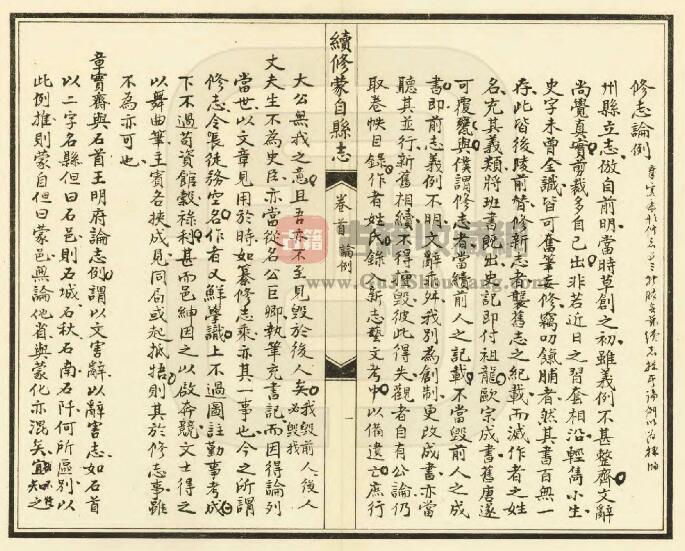 修志論例
州縣立志倣自前明當時草創之初雖義例不甚整齊文辭
尚覺真實剪裁多自己出非若近日之習套相沿輕雋小生
史字未曾全識皆可奮筆妄修竊叨餼脯者然其書百無一
存此皆後陵前替修新志者襲舊志之紀載而滅作者之姓
名充其義類將班書既出史記即付祖龍歐宋成書舊唐遂
可覆甕與僕謂修志者當續前人之記載不當毀前人之成
書即前志義例不明文辭乖舛我別為創制更改成書亦當
聽其並行新舊相續不得擅毀彼此得失觀者自有公論仍
取卷帙目錄作者姓氏錄入新志藝文考中以備遺亡庶行
續修蒙自縣志
卷首 論例
一
大公無我之意且吾亦不至見毀於後人矣我毀前人後人必毀我
丈夫生不為史臣亦當從名公巨卿執筆充書記而因得論列
當世以文章見用於時如纂修志乘亦其一事也今之所謂
修志令長徒務空名作者又鮮學識上不過圖註勤事考成
下不過苟資館穀祿利甚而邑紳因之以啟奔競文士得之
以舞曲筆主賓各挾成見同局或起抵牾則其於修志事雖
不為亦可也
章實齋與石首王明府論志例謂以文害辭以辭害志如石首
以二字名縣但曰石邑則石城石秋石南石阡何所區別以
此例推則蒙自但曰蒙邑無論他省與蒙化亦混矣
古籍收藏網
www.GujiShoucang.com